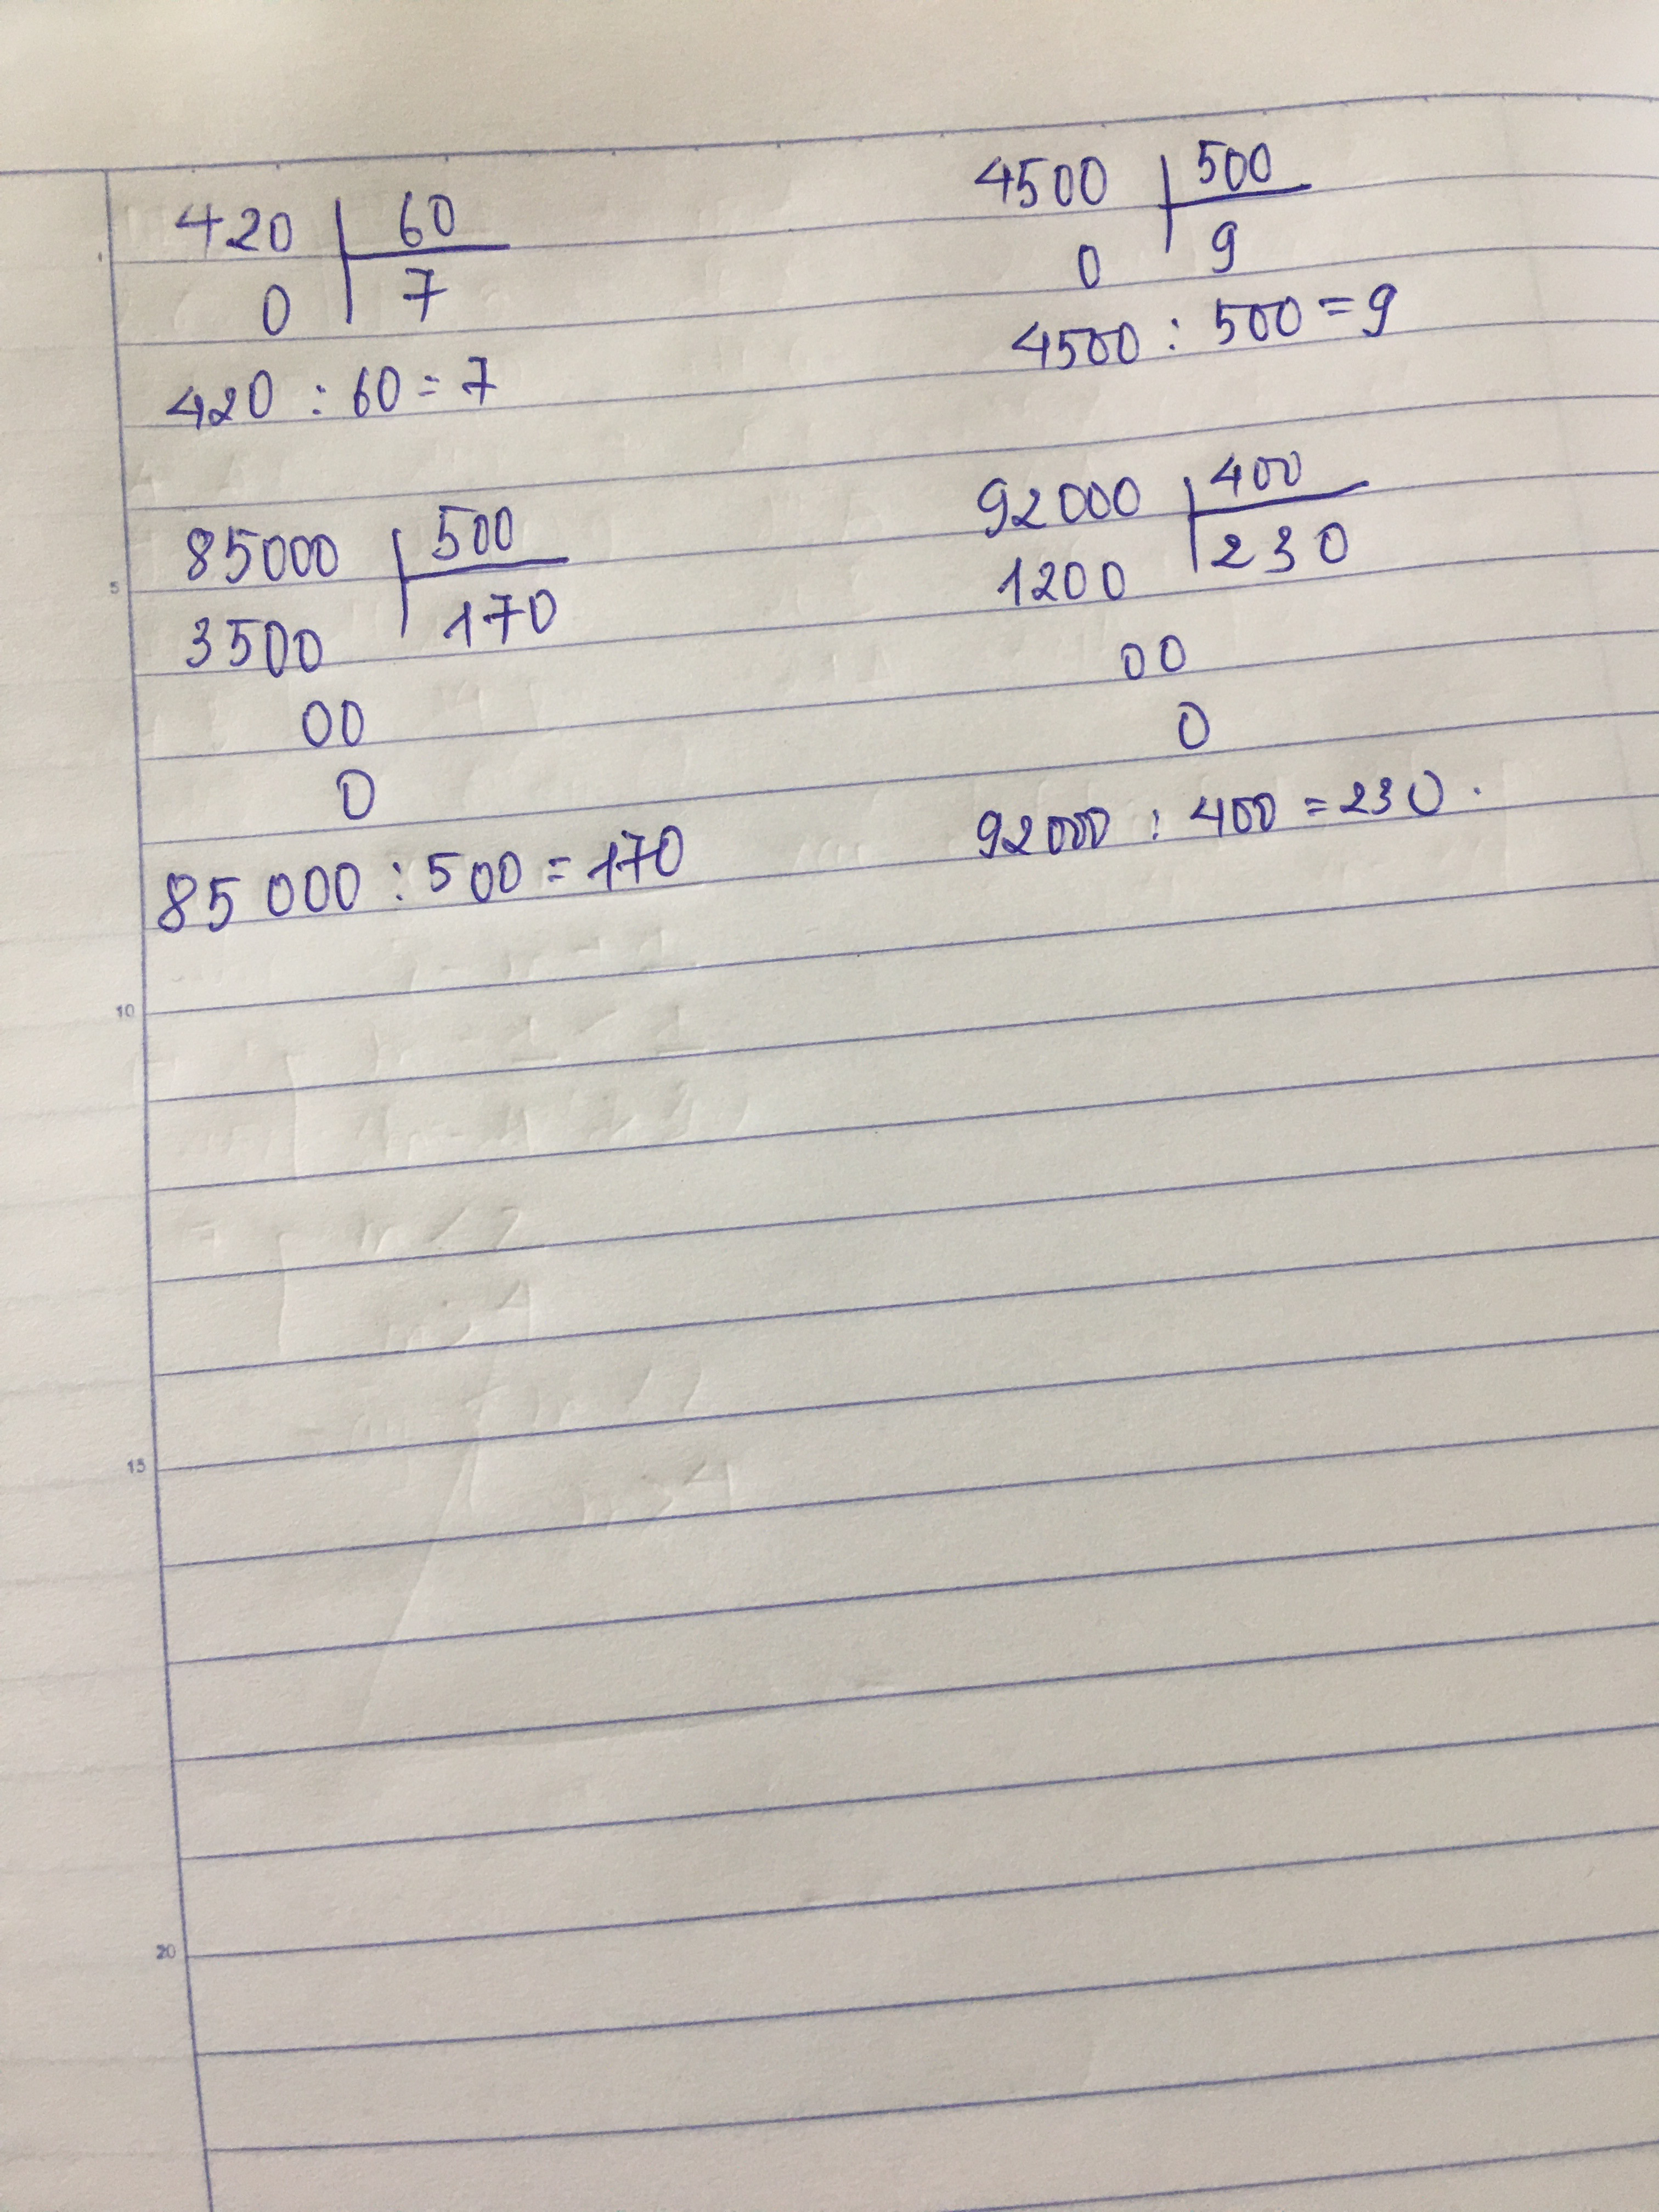 420 60
0 7
420 : 60 = 7
4500 500
0 9
4500 : 500 = 9
85000 500
3500 170
00
0
85 000 : 500 = 170
92000 400
1200 230
00
0
92000 : 400 = 230.
1
5
10
15
20